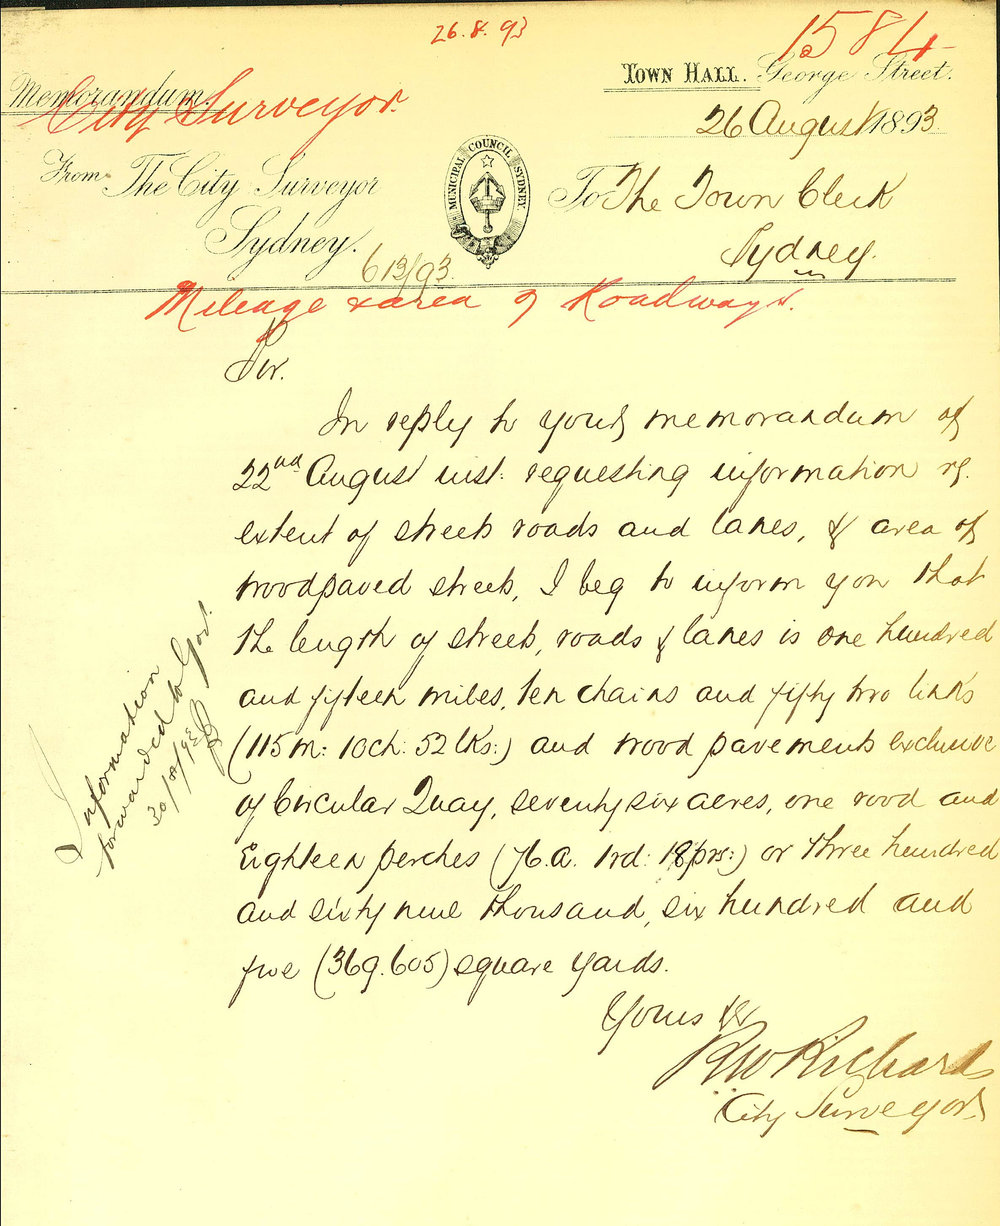 26.8.93
1584
Town Hall. George Street.
Memorandum.
City Surveyor.
26 August 1893
From The City Surveyor
Sydney.
MUNICIPAL COUNCIL SYDNEY
To The Town Clerk
Sydney.
613/93
Mileage & area of Roadways.
Sir.
In reply to yours memorandum of
22nd August inst: requesting information rg.
extent of streets roads and lanes, & area of
woodpaved streets, I beg to inform you that
the length of streets, roads & lanes is one hundred
and fifteen miles, ten chains and fifty two links
(115m: 10ch: 52 lks:) and wood pavements exclusive
of Circular Quay, seventy six acres, one rood and
Eighteen perches (76.a. 1rd: 18prs:) or three hundred
and sixty nine thousand, six hundred and
five (369.605) square yards.
Information
forwarded to Govt.
30/8/93
Yours &c
RW Richards
City Surveyor.